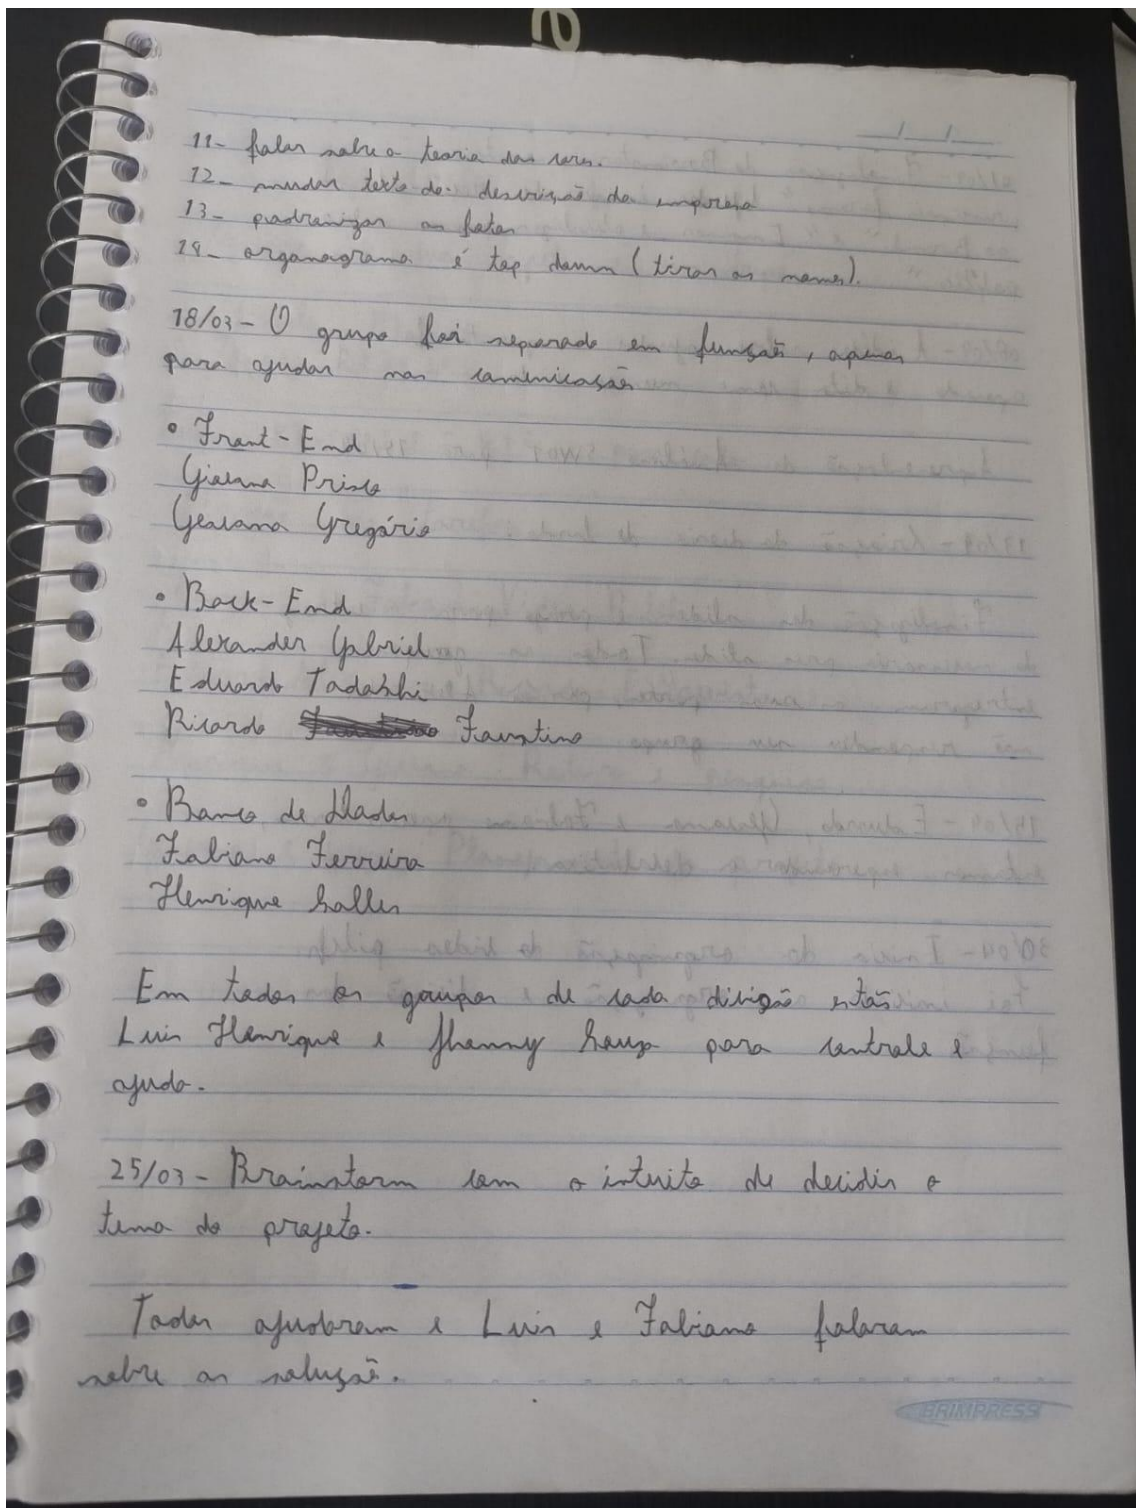 11- falar sobre a teoria das cores.
12- mudar texto da descrição da empresa
13- padronizar as fotos
14- organograma é top down (tirar os nomes).
18/03 - O grupo foi separado em função, apenas
para ajudar nas comunicação
• Front-End
Giovana Prisco
Geovana Gregório
• Back-End
Alexander Gabriel
Eduardo Tadashi
Ricardo Faustino
• Banco de Dados
Fabiano Ferreira
Henrique Salles
Em todos os grupos de cada divisão estão
Luis Henrique e Jhenny Souza para controle e
ajuda.
25/03 - Brainstorm com o intuito de decidir o
tema do projeto.
Todos ajudaram e Luis e Fabiano falaram
sobre as solução.
BRIMPRESS